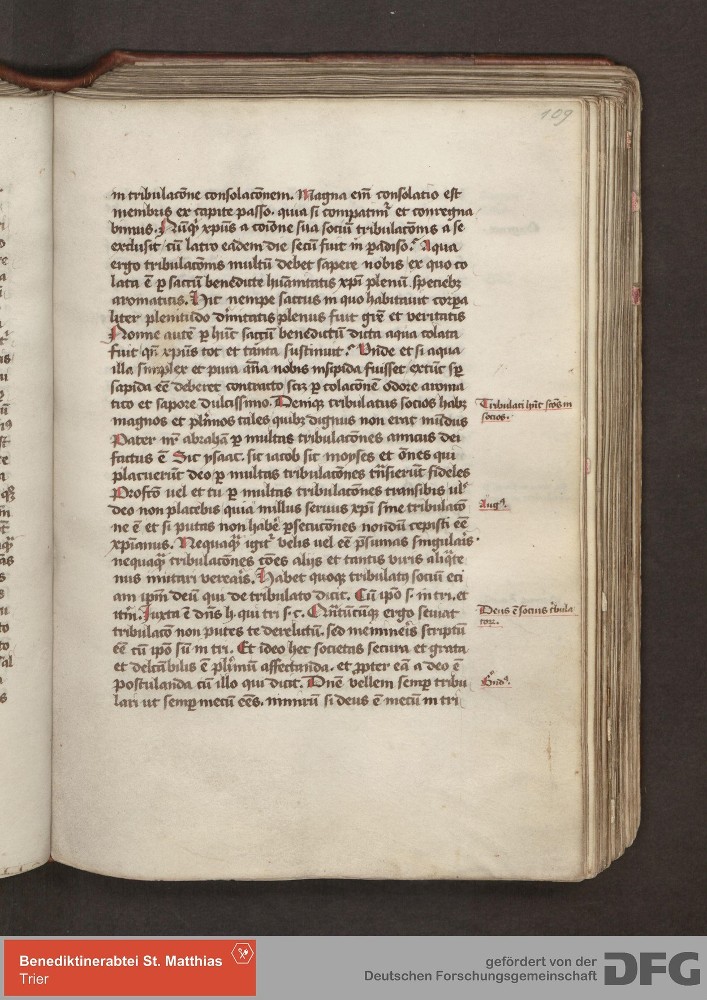 109
in tribulac̄one consolac̄onem. Magna em̄ consolatio est
membris ex capite passo. quia si compatimͬ et conregna
bimus. Nūqͥd xp̄us a cōione sua sociū tribulac̄onis a se
exclusit cū latro eadem die secū fuit in ꝑadiso? Aqua
ergo tribulac̄onis multū debet sapere nobis ex quo co
lata ē ꝑ saccū benedicte hūanitatis xp̄i plenū speciebꝫ
aromaticis. Hic nempe saccus in quo habitauit corꝑa
liter plenitudo diuinitatis plenus fuit grē et veritatis
Nonne autē ꝑ hūc saccū benedictū dicta aqua colata
fuit qn̄ xp̄us tot et tanta sustinuit? Vnde et si aqua
illa simplex et pura an̄a nobis insipida fuisset extūc sꝑ
sapida eē deberet contracto scꝫ ꝑ colac̄onē odore aroma
tico et sapore dulcissimo. Deniqꝫ tribulatus socios habꝫ
magnos et plīmos tales quibꝫ dignus non erat mūdus
Pater nr̄ abrahā ꝑ multas tribulac̄ones amicus dei
factus ē Sic ysaac. sic iacob sic moyses et om̄es qui
placuerūt deo ꝑ multas tribulac̄ones trāsierūt fideles
Profcō uel et tu ꝑ multas tribulac̄ones transibis ul̄
deo non placebis quia nullus seruus xp̄i sine tribulac̄o
ne ē et si putas non habē ꝑsecuc̄ones nondū cepisti eē
xp̄ianus. Nequaqꝫ igitͬ velis uel eē p̄sumas singularis.
nequaqꝫ tribulac̄ones cōes alijs et tantis viris aliqͣte
nus mutari verearis. Habet quoqꝫ tribulatꝰ sociū eci
am ip̄m deū qui de tribulato dicit. Cū ip̄o s. in tri. et
itm̄. Iuxta ē dn̄s h. qui tri. s. c. Qn̄tūcūqꝫ ergo seuiat
tribulac̄o non putes te derelictū. sed memineris scriptū
eē cū ip̄o sū in tri. Et ideo hec societas secura et grata
et delc̄abilis ē plīmū affectanda. et ꝓpter eā a deo ē
postulanda cū illo qui dicit. Dn̄e vellem semꝑ tribu
lari ut semꝑ mecū eēs. nimirū si deus ē mecū in tri
Tribulati hn̄t scōs in
socios.
Augꝰ.
Deus ē socius tͥbula
torꝝ.
Bern̄dꝰ.
Benediktinerabtei St. Matthias
Trier
gefördert von der
Deutschen Forschungsgemeinschaft
DFG